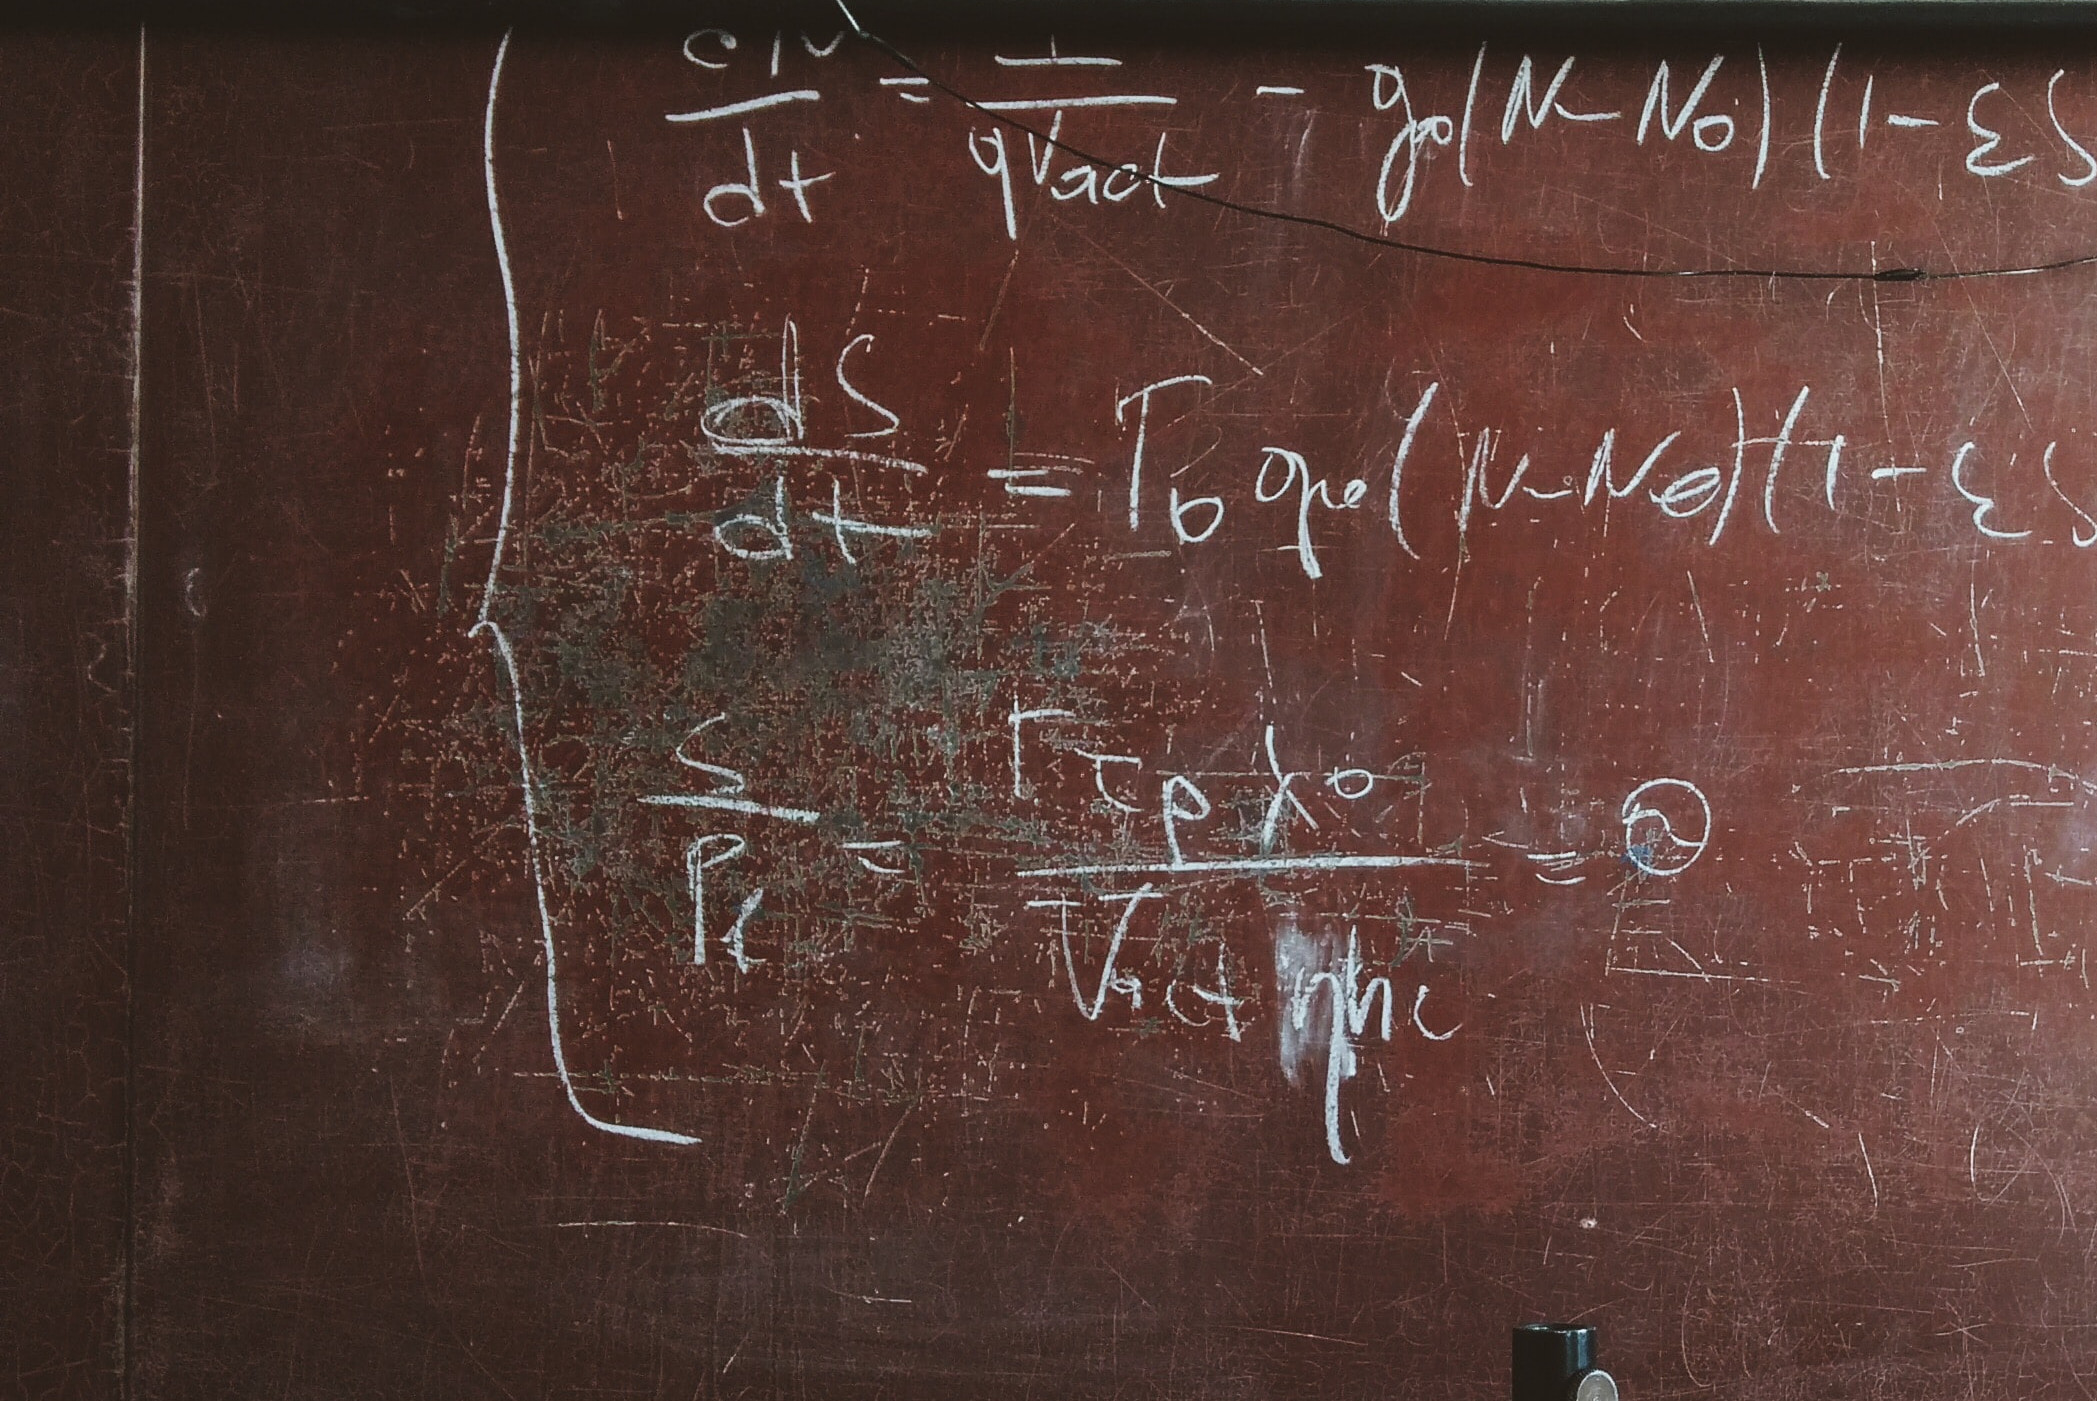 dN/dt = I/qVact - go(N-No)(1-εS
dS/dt = Γo go(N-No)(1-εS
S/Pf = Γτpλo/Vact ηhc =